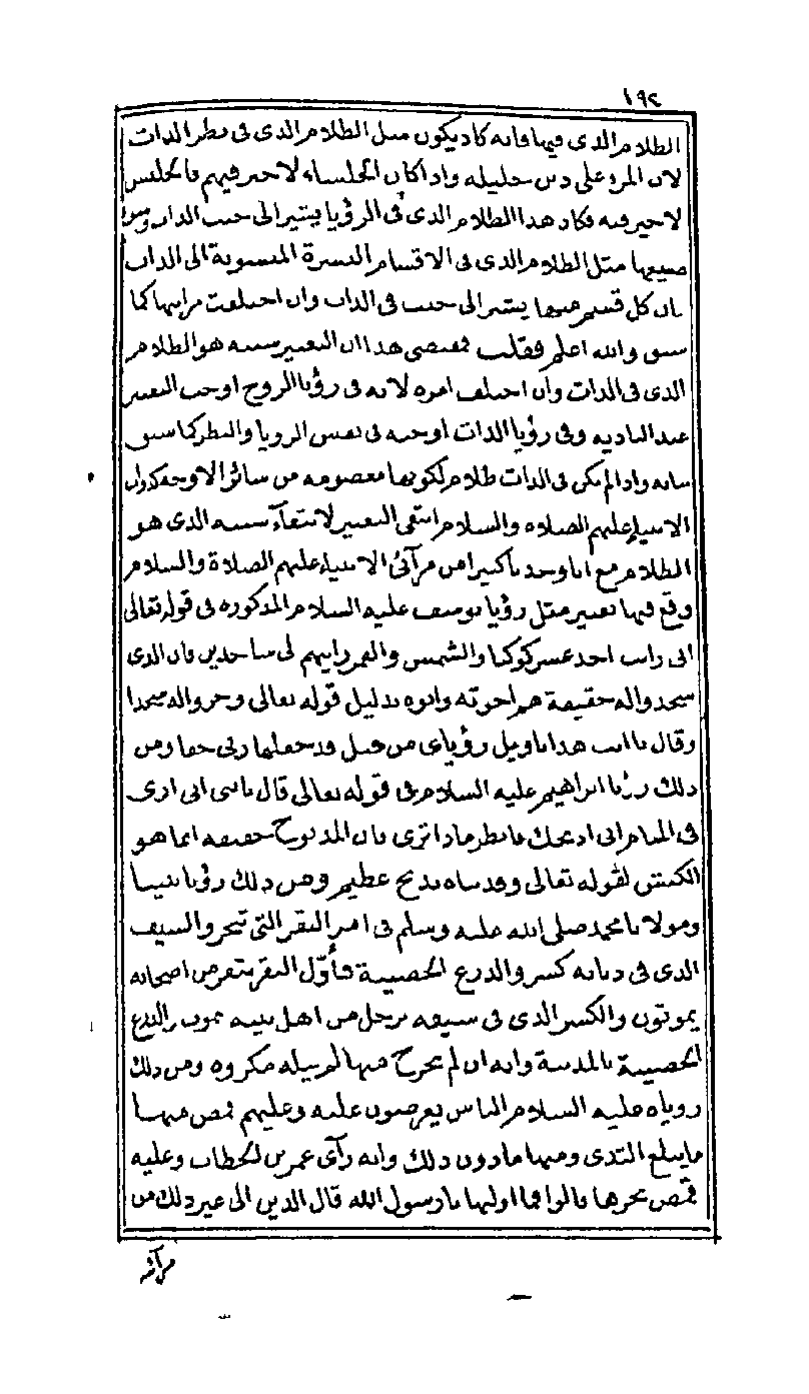 ١٩٢
الظلام الذى فيها فانه كاد يكون مثل الظلام الذى فى نظر الذات
لان المرء على دين خليله واذا كان الجلساء لا خير فيهم فالجليس
لا خير فيه فكاد هذا الظلام الذى فى الرؤيا يشير الى خبث الذات وسوء
صنيعها مثل الظلام الذى فى الاقسام العشرة المنسوبة الى الذات
فان كل قسم منها يشير الى خبث فى الذات وان اختلفت مراتبها كما
سبق والله اعلم فقلت فمقتضى هذا ان التعبير سببه هو الظلام
الذى فى الذات وان اختلف امره لانه فى رؤيا الروح اوجب التعبير
عند التادية وفى رؤيا الذات اوجبه فى نفس الرويا والنظر كما سبق
بيانه واذا لم يكن فى الذات ظلام لكونها معصومه من سائر الاوجه كذوات
الانبياء عليهم الصلاه والسلام انتفى التعبير لانتفآء سببه الذى هو
الظلام مع انا وجدنا كثيرا من مرآئى الانبياء عليهم الصلاة والسلام
وقع فيها تعبير مثل رؤيا يوسف عليه السلام المذكوره فى قوله تعالى
انى رايت احد عشر كوكبا والشمس والقمر رايتهم لى ساجدين فان الذى
سجد واله حقيقة هم اخوته وابوه بدليل قوله تعالى وخروا له سجدا
وقال ياابت هذا تاويل رؤياى من قبل قد جعلها ربى حقا ومن
ذلك رؤيا ابراهيم عليه السلام فى قوله تعالى قال يابنى انى ارى
فى المنام انى اذبحك فانظر ماذا ترى فان المذبوح حقيقه انما هو
الكبش لقوله تعالى وفديناه بذبح عظيم ومن ذلك رؤيا نبينا
ومولانا محمد صلى الله عليه وسلم فى امر البقر التى تنحر والسيف
الذى فى ذبابه كسر والدرع الحصينة فأوّل البقر بنفر من اصحابه
يموتون والكسر الذى فى سيفه برجل من اهل بيته يموت والدرع
الحصينة بالمدينة وانه ان لم يخرج منها لم ينله مكروه ومن ذلك
روياه عليه السلام الناس يعرضون عليه وعليهم قمص منها
ما يبلغ الثدى ومنها ما دون ذلك وانه رآى عمر بن الخطاب وعليه
قمص يجرها قالوا فما اولتها يا رسول الله قال الدين الى غير ذلك من
مرآئيه